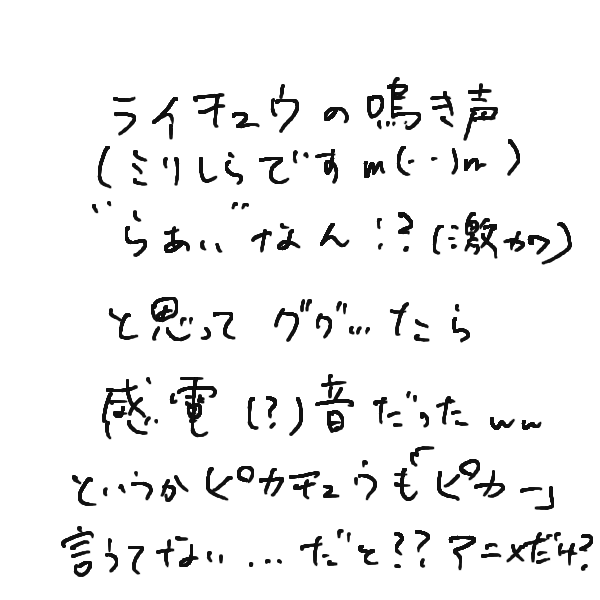 ライチュウの鳴き声
(ミリしらです m(‥)m )
"らあい"なん!?(に激カワ)
と思って ググ…たら
感電(?)音だったww
というかピカチュウも「ピカー」
言うてない…だと??アニメだけ?